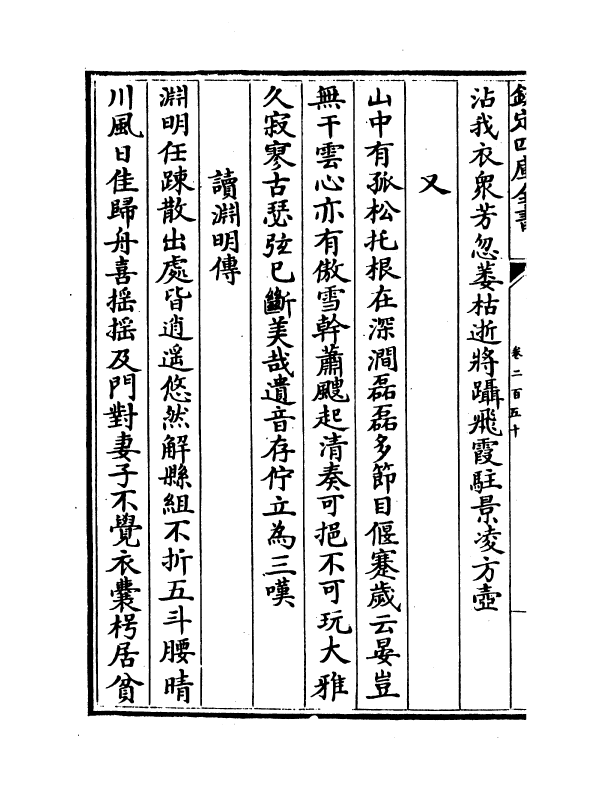 欽定四庫全書
卷二百五十
沾我衣衆芳忽萎枯逝將躡飛霞駐景凌方壺
又
山中有孤松托根在深澗磊磊多節目偃蹇歲云晏豈
無干雲心亦有傲雪幹蕭颼起清奏可挹不可玩大雅
久寂寥古瑟弦已斷美哉遺音存佇立為三嘆
讀淵明傳
淵明任踈散出處皆逍遥悠然解縣組不折五斗腰晴
川風日佳歸舟喜揺揺及門對妻子不覺衣囊枵居貧